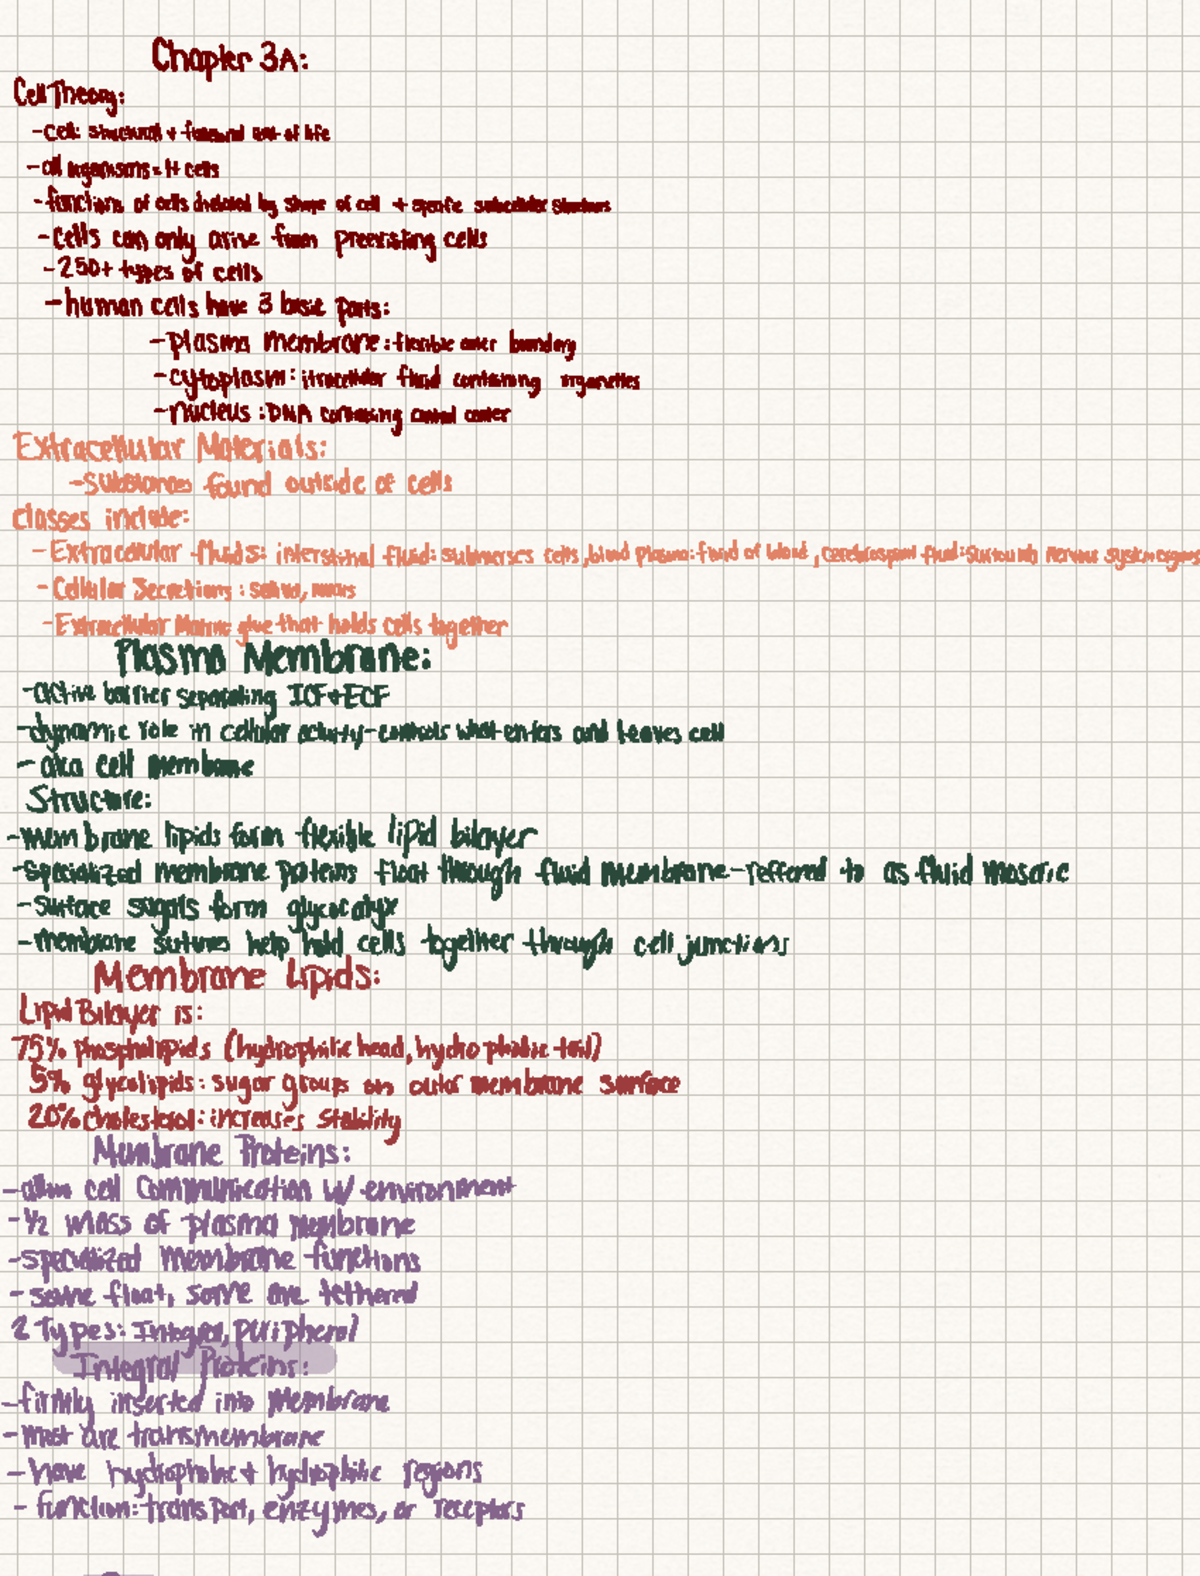 Chapter 3A:
Cell Theory:
-cell: structural + functional unit of life
-all organisms = 1+ cells
-functions of cells dictated by shape of cell + specific subcellular structures
-cells can only arise from preexisting cells
-250+ types of cells
-human cells have 3 basic parts:
-plasma membrane: flexible outer boundary
-cytoplasm: intracellular fluid containing organelles
-nucleus: DNA containing control center
Extracellular Materials:
-Substances found outside of cells
classes include:
-Extracellular fluids: interstitial fluid: submerses cells, blood plasma: fluid of blood, cerebrospinal fluid: surrounds nervous system organs
-Cellular Secretions: saliva, mucus
-Extracellular Matrix: glue that holds cells together
Plasma Membrane:
-active barrier separating ICF+ECF
-dynamic role in cellular activity-controls what enters and leaves cell
-aka cell membrane
Structure:
-membrane lipids form flexible lipid bilayer
-specialized membrane proteins float through fluid membrane-reffered to as fluid mosaic
-surface sugars form glycocalyx
-membrane help hold cells together through cell junctions
Membrane Lipids:
Lipid Bilayer is:
75% phospholipids (hydrophilic head, hydrophobic tail)
5% glycolipids: sugar groups on outer membrane surface
20% cholesterol: increases stability
Membrane Proteins:
-allow cell communication w/ environment
-1/2 mass of plasma membrane
-specialized membrane functions
-some float, some are tethered
2 Types: Integral, peripheral
Integral Proteins:
-firmly inserted into membrane
-most are transmembrane
-have hydrophobic + hydrophilic regions
-function: transport, enzymes, or receptors